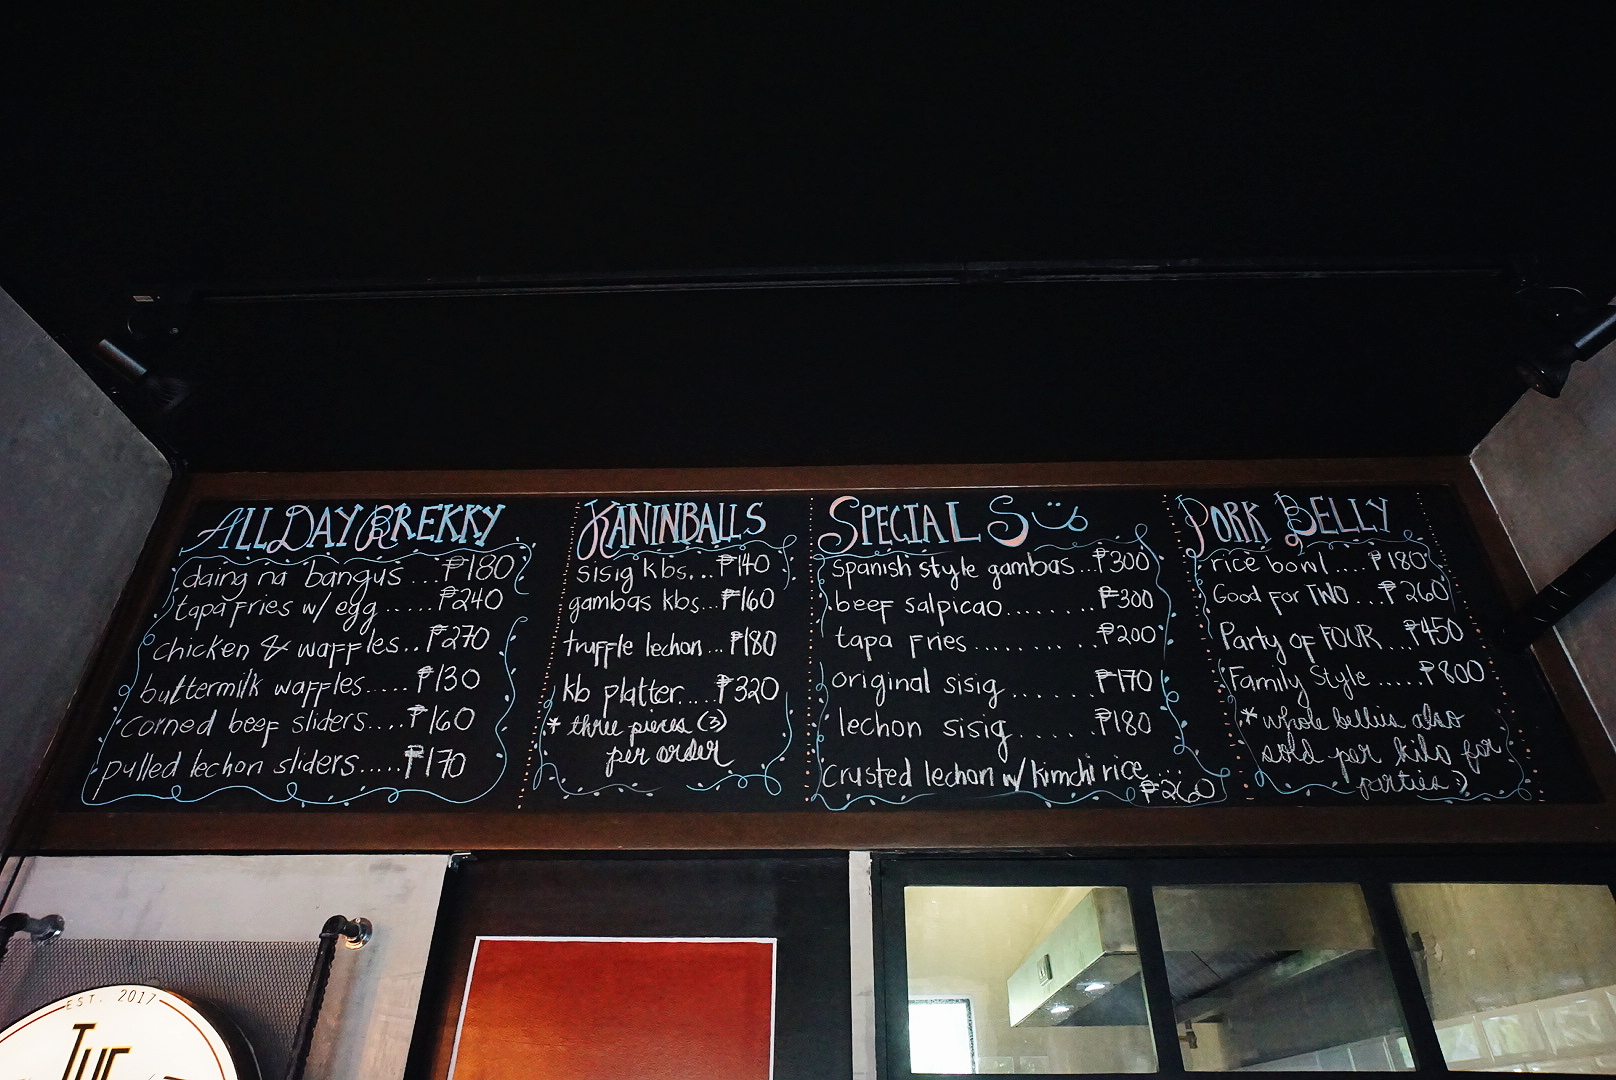 ALL DAY BREKKY
daing na bangus ... ₱180
tapa fries w/ egg ..... ₱240
chicken & waffles.. ₱270
buttermilk waffles..... ₱130
corned beef sliders.... ₱160
pulled lechon sliders..... ₱170
KANINBALLS
sisig kbs... ₱140
gambas kbs... ₱160
truffle lechon ... ₱180
kb platter.... ₱320
* three pieces (3)
per order
SPECIALS
Spanish style gambas... ₱300
beef salpicao........ ₱300
tapa fries ........ ₱200
original sisig ...... ₱170
lechon sisig ...... ₱180
crusted lechon w/ kimchi rice...
₱260
PORK BELLY
rice bowl .... ₱180
Good for TWO.... ₱260
Party of FOUR ... ₱450
Family Style ..... ₱800
* whole bellies also
sold per kilo for
parties :)
EST. 2017
THE